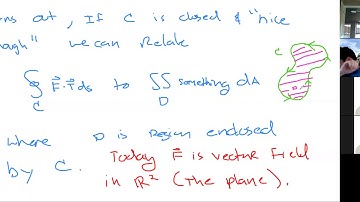 ns out, If C is closed & "nice
ough" we can relate
∮ F⃗·T⃗ds to ∬ something dA
C D
C
D
where D is region enclosed
by C. Today F⃗ is vector field
in ℝ² (the plane).